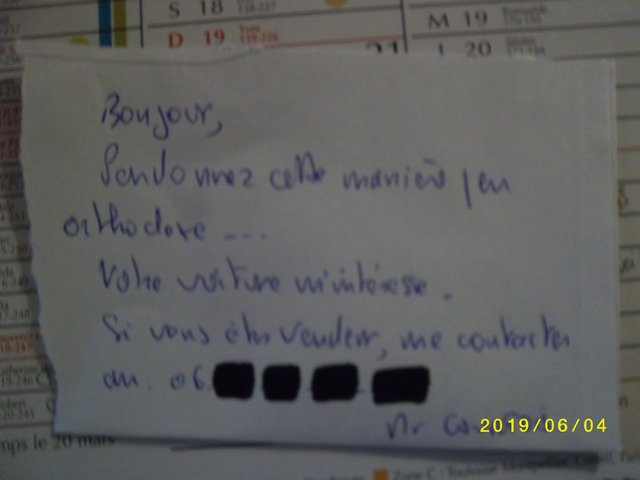 S 18
M 19
D 19
J 20
Bonjour,
Pardonnez cette manière peu
orthodoxe ....
Votre voiture m'intéresse.
Si vous êtes vendeur, me contacter
au. 06
Mr
2019/06/04
mps le 20 mars
Zone C : Toulouse, Montpellier, Créteil,